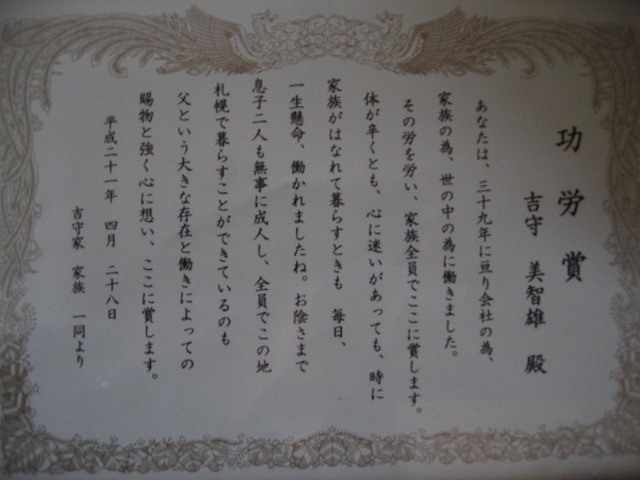 功労賞
吉守　美智雄　殿
あなたは、三十九年に亘り会社の為、
家族の為、世の中の為に働きました。
その労を労い、家族全員でここに賞します。
体が辛くとも、心に迷いがあっても、時に
家族がはなれて暮らすときも　毎日、
一生懸命、働かれましたね。お陰さまで
息子二人も無事に成人し、全員でこの地
札幌で暮らすことができているのも
父という大きな存在と働きによっての
賜物と強く心に想い、ここに賞します。
平成二十一年　四月　二十八日
吉守家　家族　一同より